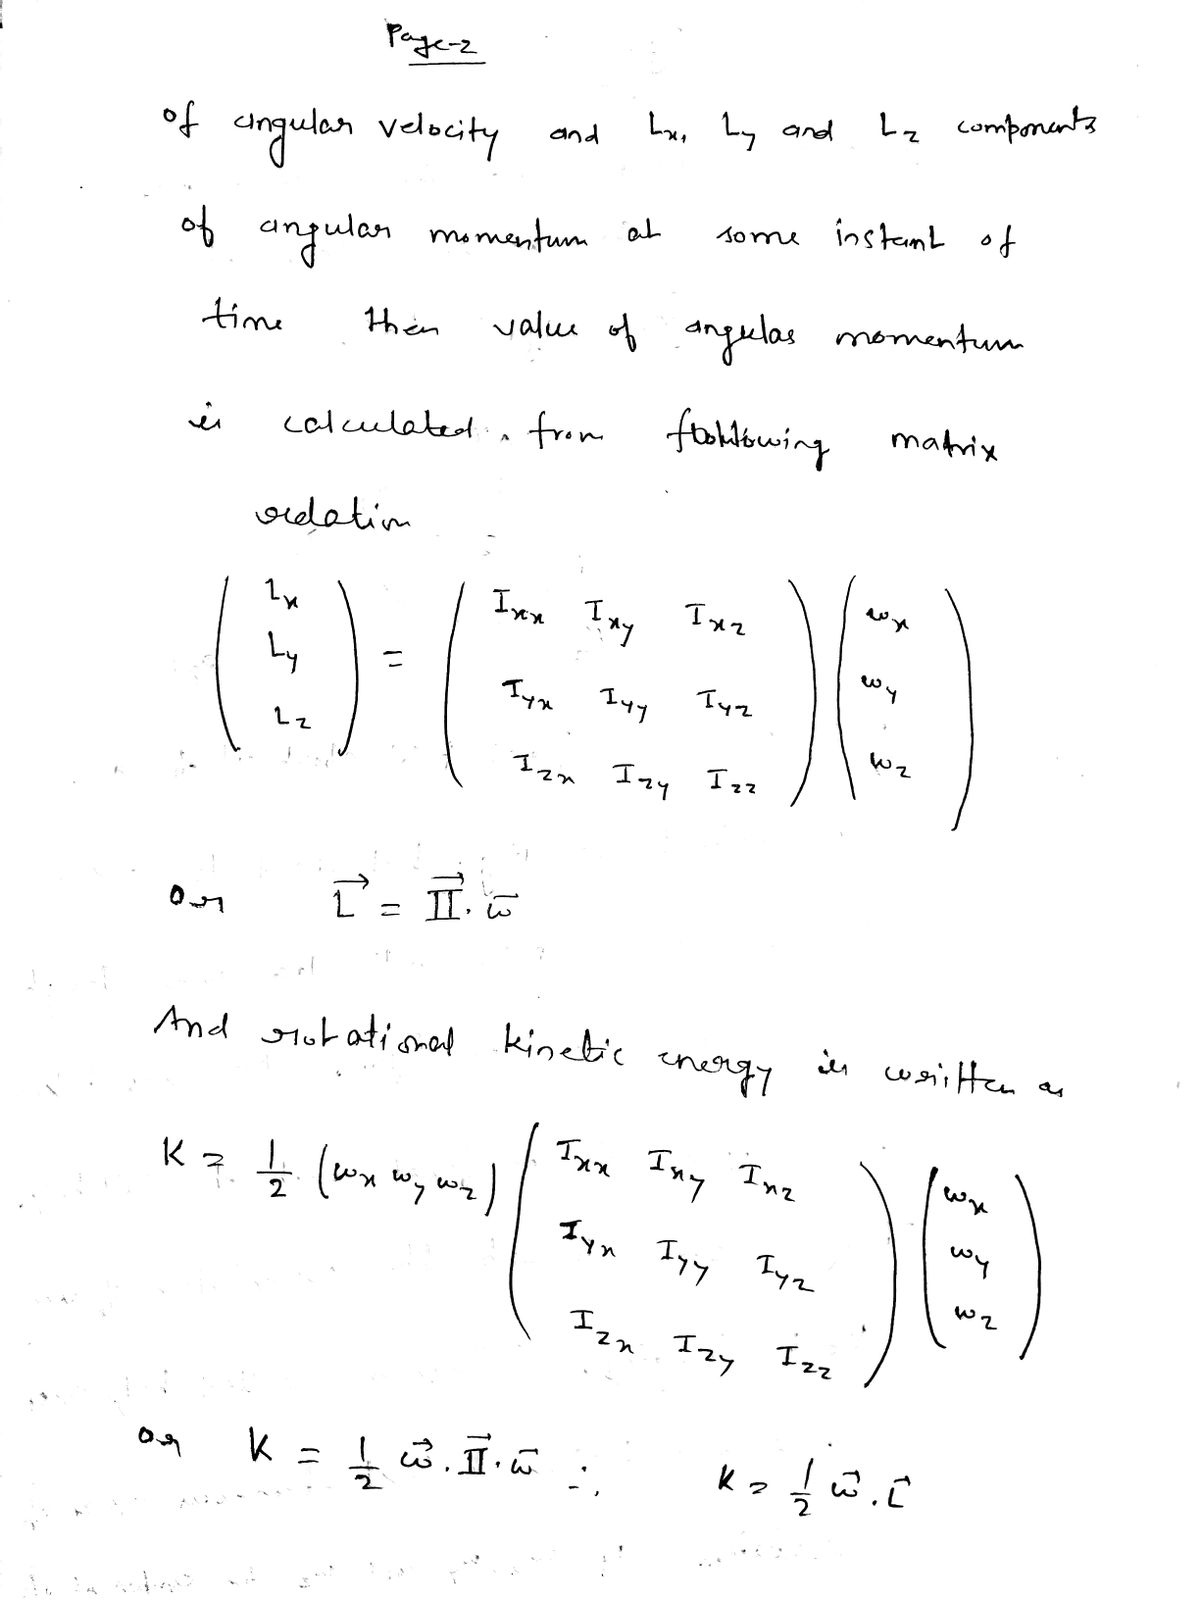 Page-2
of angular velocity and Lx, Ly and Lz components
of angular momentum at some instant of
time then value of angular momentum
is calculated from following matrix
relation
( Lx ) = ( Ixx Ixy Ixz ) ( ωx )
( Ly ) ( Iyx Iyy Iyz ) ( ωy )
( Lz ) ( Izx Izy Izz ) ( ωz )
or L⃗ = II⃗ . ω⃗
And rotational kinetic energy is written as
K = 1/2 (ωx ωy ωz) ( Ixx Ixy Ixz ) ( ωx )
( Iyx Iyy Iyz ) ( ωy )
( Izx Izy Izz ) ( ωz )
or K = 1/2 ω⃗ . II⃗ . ω⃗ ∴ K = 1/2 ω⃗ . L⃗